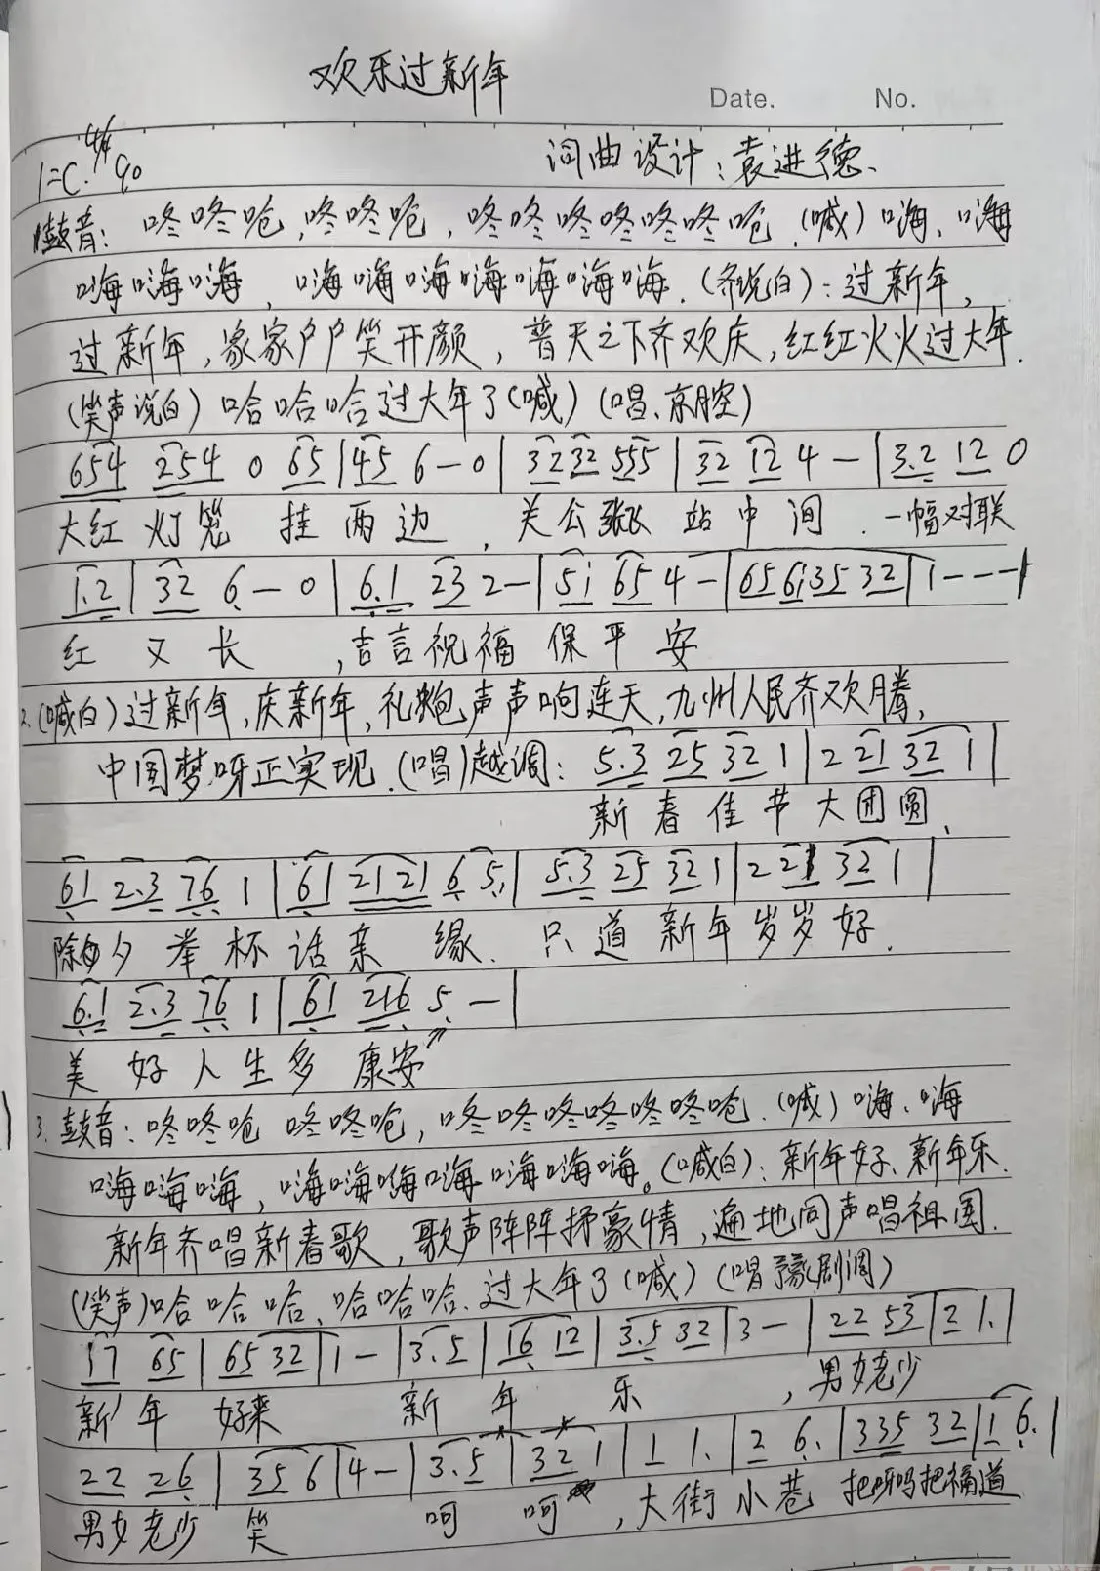 欢乐过新年
Date. No.
1=C. 4/4 90
词曲设计:袁进德、
鼓音:咚咚呛,咚咚呛,咚咚咚咚咚咚呛.(喊)嗨、嗨
嗨嗨嗨,嗨嗨嗨嗨嗨嗨嗨.(齐说白):过新年,
过新年,家家户户笑开颜,普天之下齐欢庆,红红火火过大年.
(笑声说白)哈哈哈过大年了(喊)(唱、京腔)
654 254 0 65|45 6-0|3232 555|32 12 4-|3.2 12 0
大红灯笼挂两边,关公张飞站中间.一幅对联
1.2|32 6-0|6.1 23 2-|5i 65 4-|65 6i 35 32|1---|
红又长,吉言祝福保平安
2.(喊白)过新年,庆新年,礼炮声声响连天,九州人民齐欢腾,
中国梦呀正实现.(唱)越调:5.3 25 32 1|2 21 32 1|
新春佳节大团圆、
61 2.3 76 1|61 2121 6 5|5.3 25 32 1|2 21 32 1|
除夕举杯话亲缘.只道新年岁岁好.
6.1 2.3 76 1|61 216 5-|
美好人生多康安
3.鼓音:咚咚呛 咚咚呛,咚咚咚咚咚咚呛.(喊)嗨、嗨
嗨嗨嗨,嗨嗨嗨嗨嗨嗨嗨。(喊白):新年好、新年乐.
新年齐唱新春歌,歌声阵阵抒豪情,遍地同声唱祖国.
(笑声)哈哈哈、哈哈哈、过大年了(喊)(唱豫剧调)
i7 65|65 32|1-|3.5|16 12|3.5 32|3-|22 53|2 1.|
新年好来新年乐,男女老少
22 26|35 6|4-|3.5|32 1|1 1.|2 6.|335 32|1 6.|
男女老少笑呵呵,大街小巷把呀吗把福道